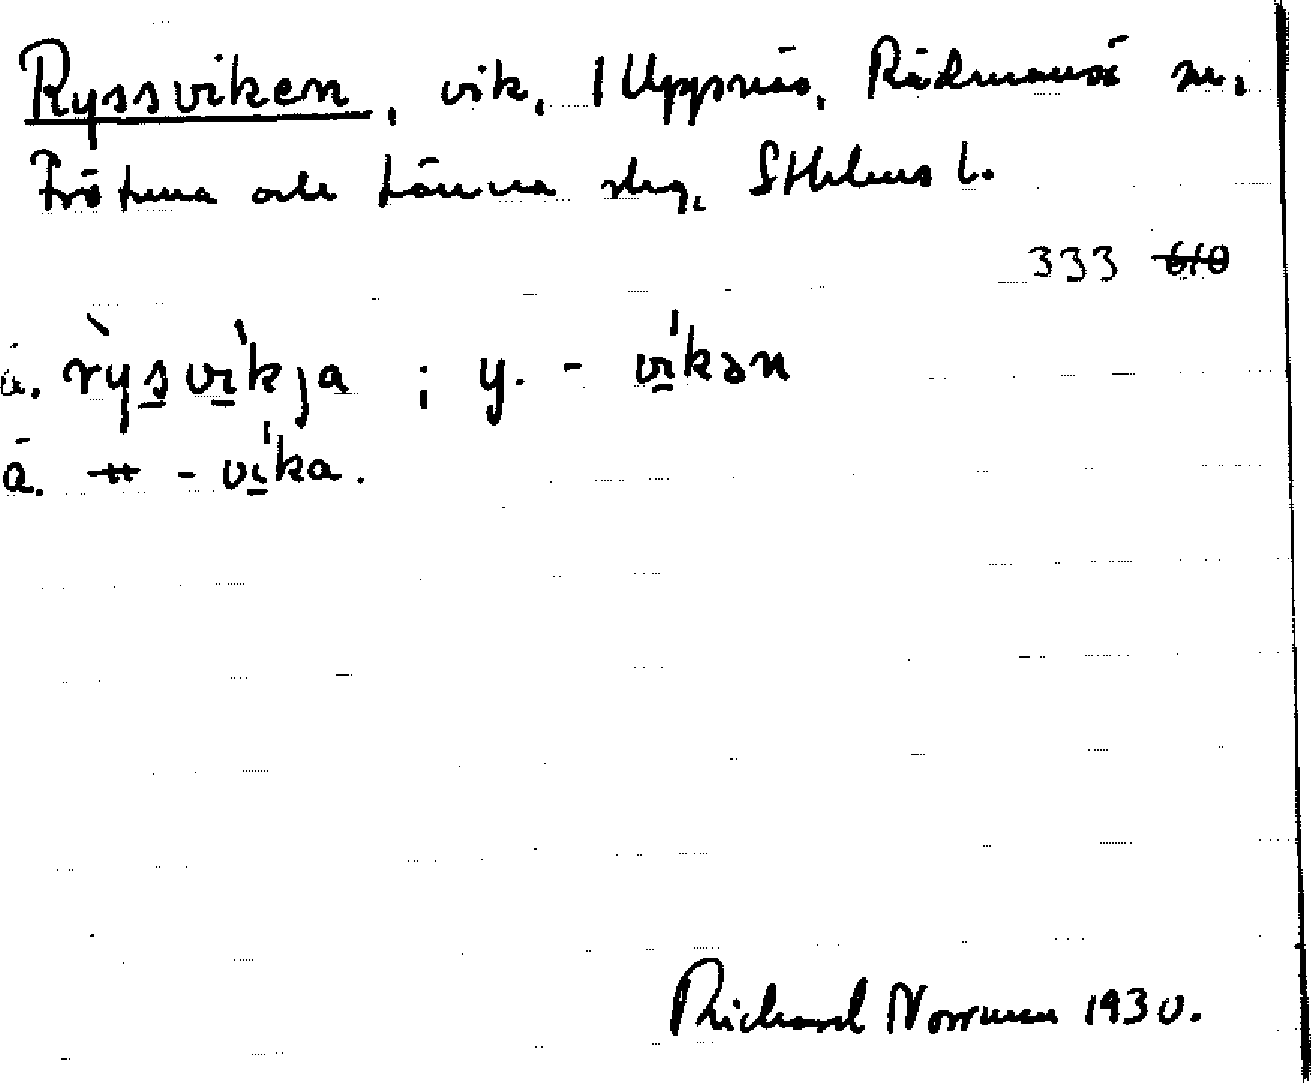 Ryssviken, vik, 1 Uppsnäs, Rådmansö sn,
Frötuna och Länna slg, Sthlms l.
333 610
ä. rỳsvi̍kja ; y. - vi̍kən
ä. - vi̍ka.
Richard Norrman 1930.